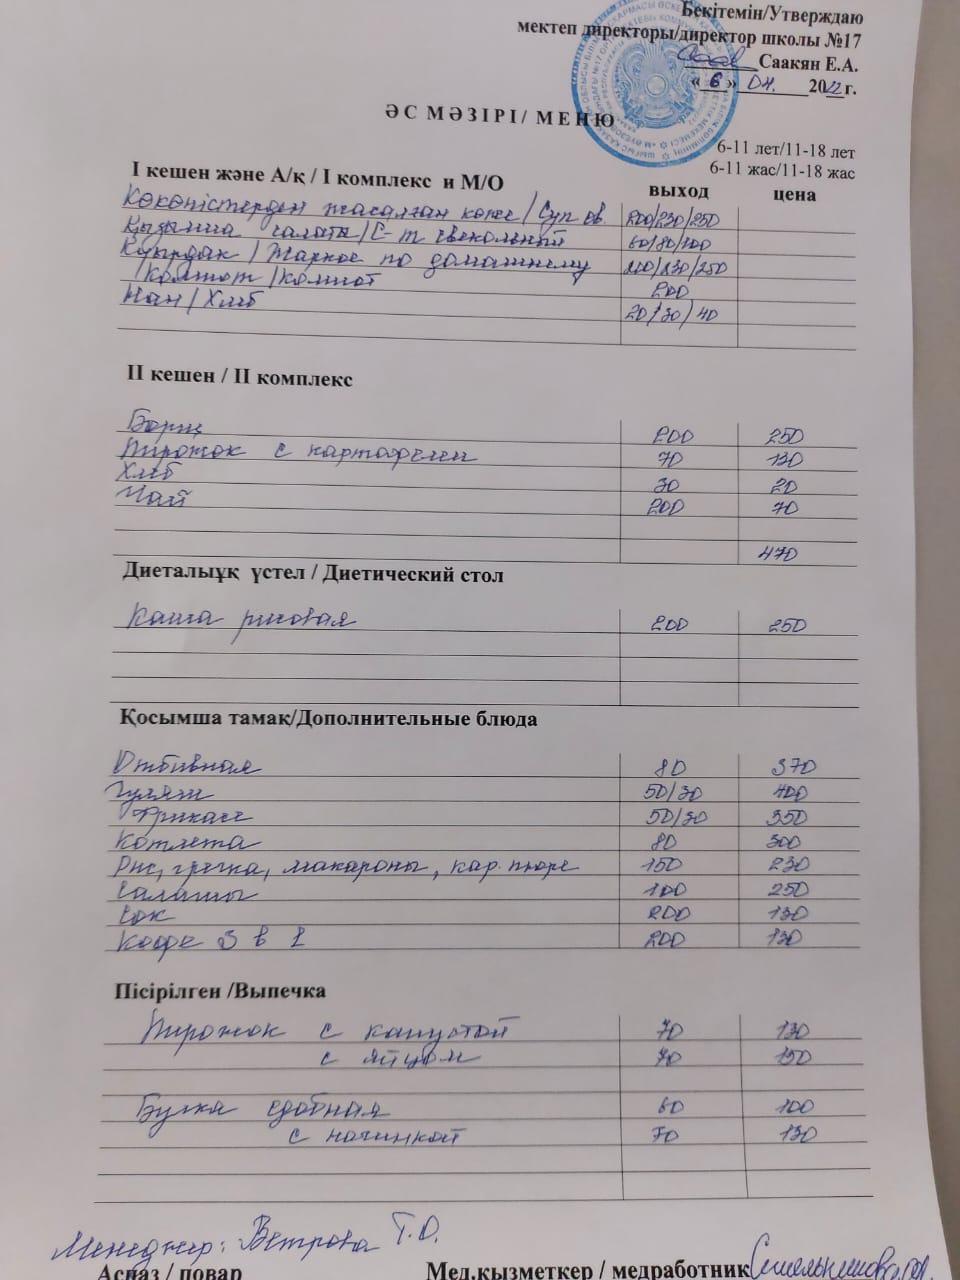 Бекітемін/Утверждаю
мектеп директоры/директор школы №17
Саакян Е.А.
« 6 » 04. 2022г.
ӘС МӘЗІРІ/ МЕНЮ
6-11 лет/11-18 лет
6-11 жас/11-18 жас
І кешен және А/қ / І комплекс и М/О выход цена
Көкөністерден жасалған көже/Суп ов 200/230/250
Қызылша салаты/С-т свекольный 60/80/100
Қуырдақ/Жаркое по домашнему 200/230/250
/Компот/компот 200
Нан/Хлеб 20/30/40
ІІ кешен / ІІ комплекс
Борщ 200 250
Пирожок с картофелем 70 130
Хлеб 30 20
Чай 200 70
470
Диеталыұқ үстел / Диетический стол
Каша рисовая 200 250
Қосымша тамақ/Дополнительные блюда
Отбивная 80 370
Гуляш 50/30 400
Фрикасе 50/30 350
Котлета 80 300
Рис, гречка, макароны, кар. пюре 150 230
Салаты 100 250
Сок 200 130
Кофе 3 в 1 200 130
Пісірілген /Выпечка
Пирожок с капустой 70 130
с яйцом 70 150
Булка сдобная 60 100
с начинкой 70 130
Менеджер: Ветрова Т.О.
Аспаз / повар Мед.қызметкер / медработник